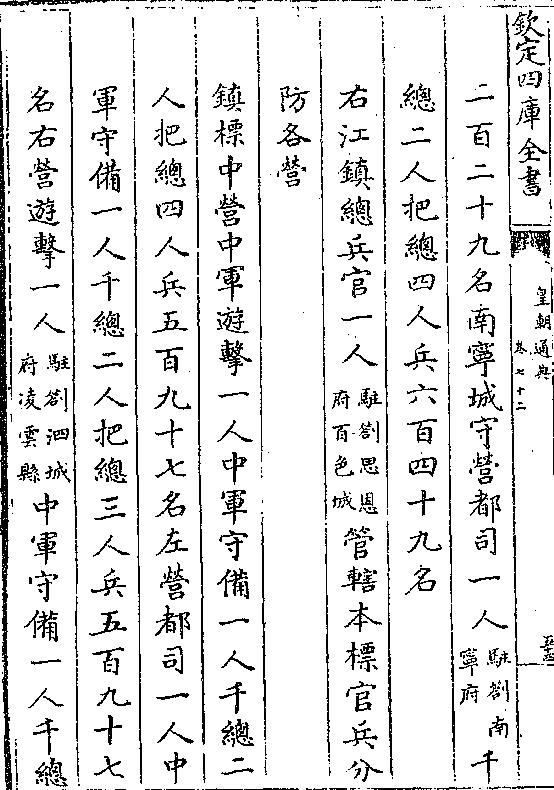 欽定四庫全書
皇朝通典
卷七十二
二百二十九名南寧城守營都司一人駐劄南寧府千
總二人把總四人兵六百四十九名
右江鎮總兵官一人駐劄思恩府百色城管轄本標官兵分
防各營
鎮標中營中軍遊擊一人中軍守備一人千總二
人把總四人兵五百九十七名左營都司一人中
軍守備一人千總二人把總三人兵五百九十七
名右營遊擊一人駐劄泗城府凌雲縣中軍守備一人千總